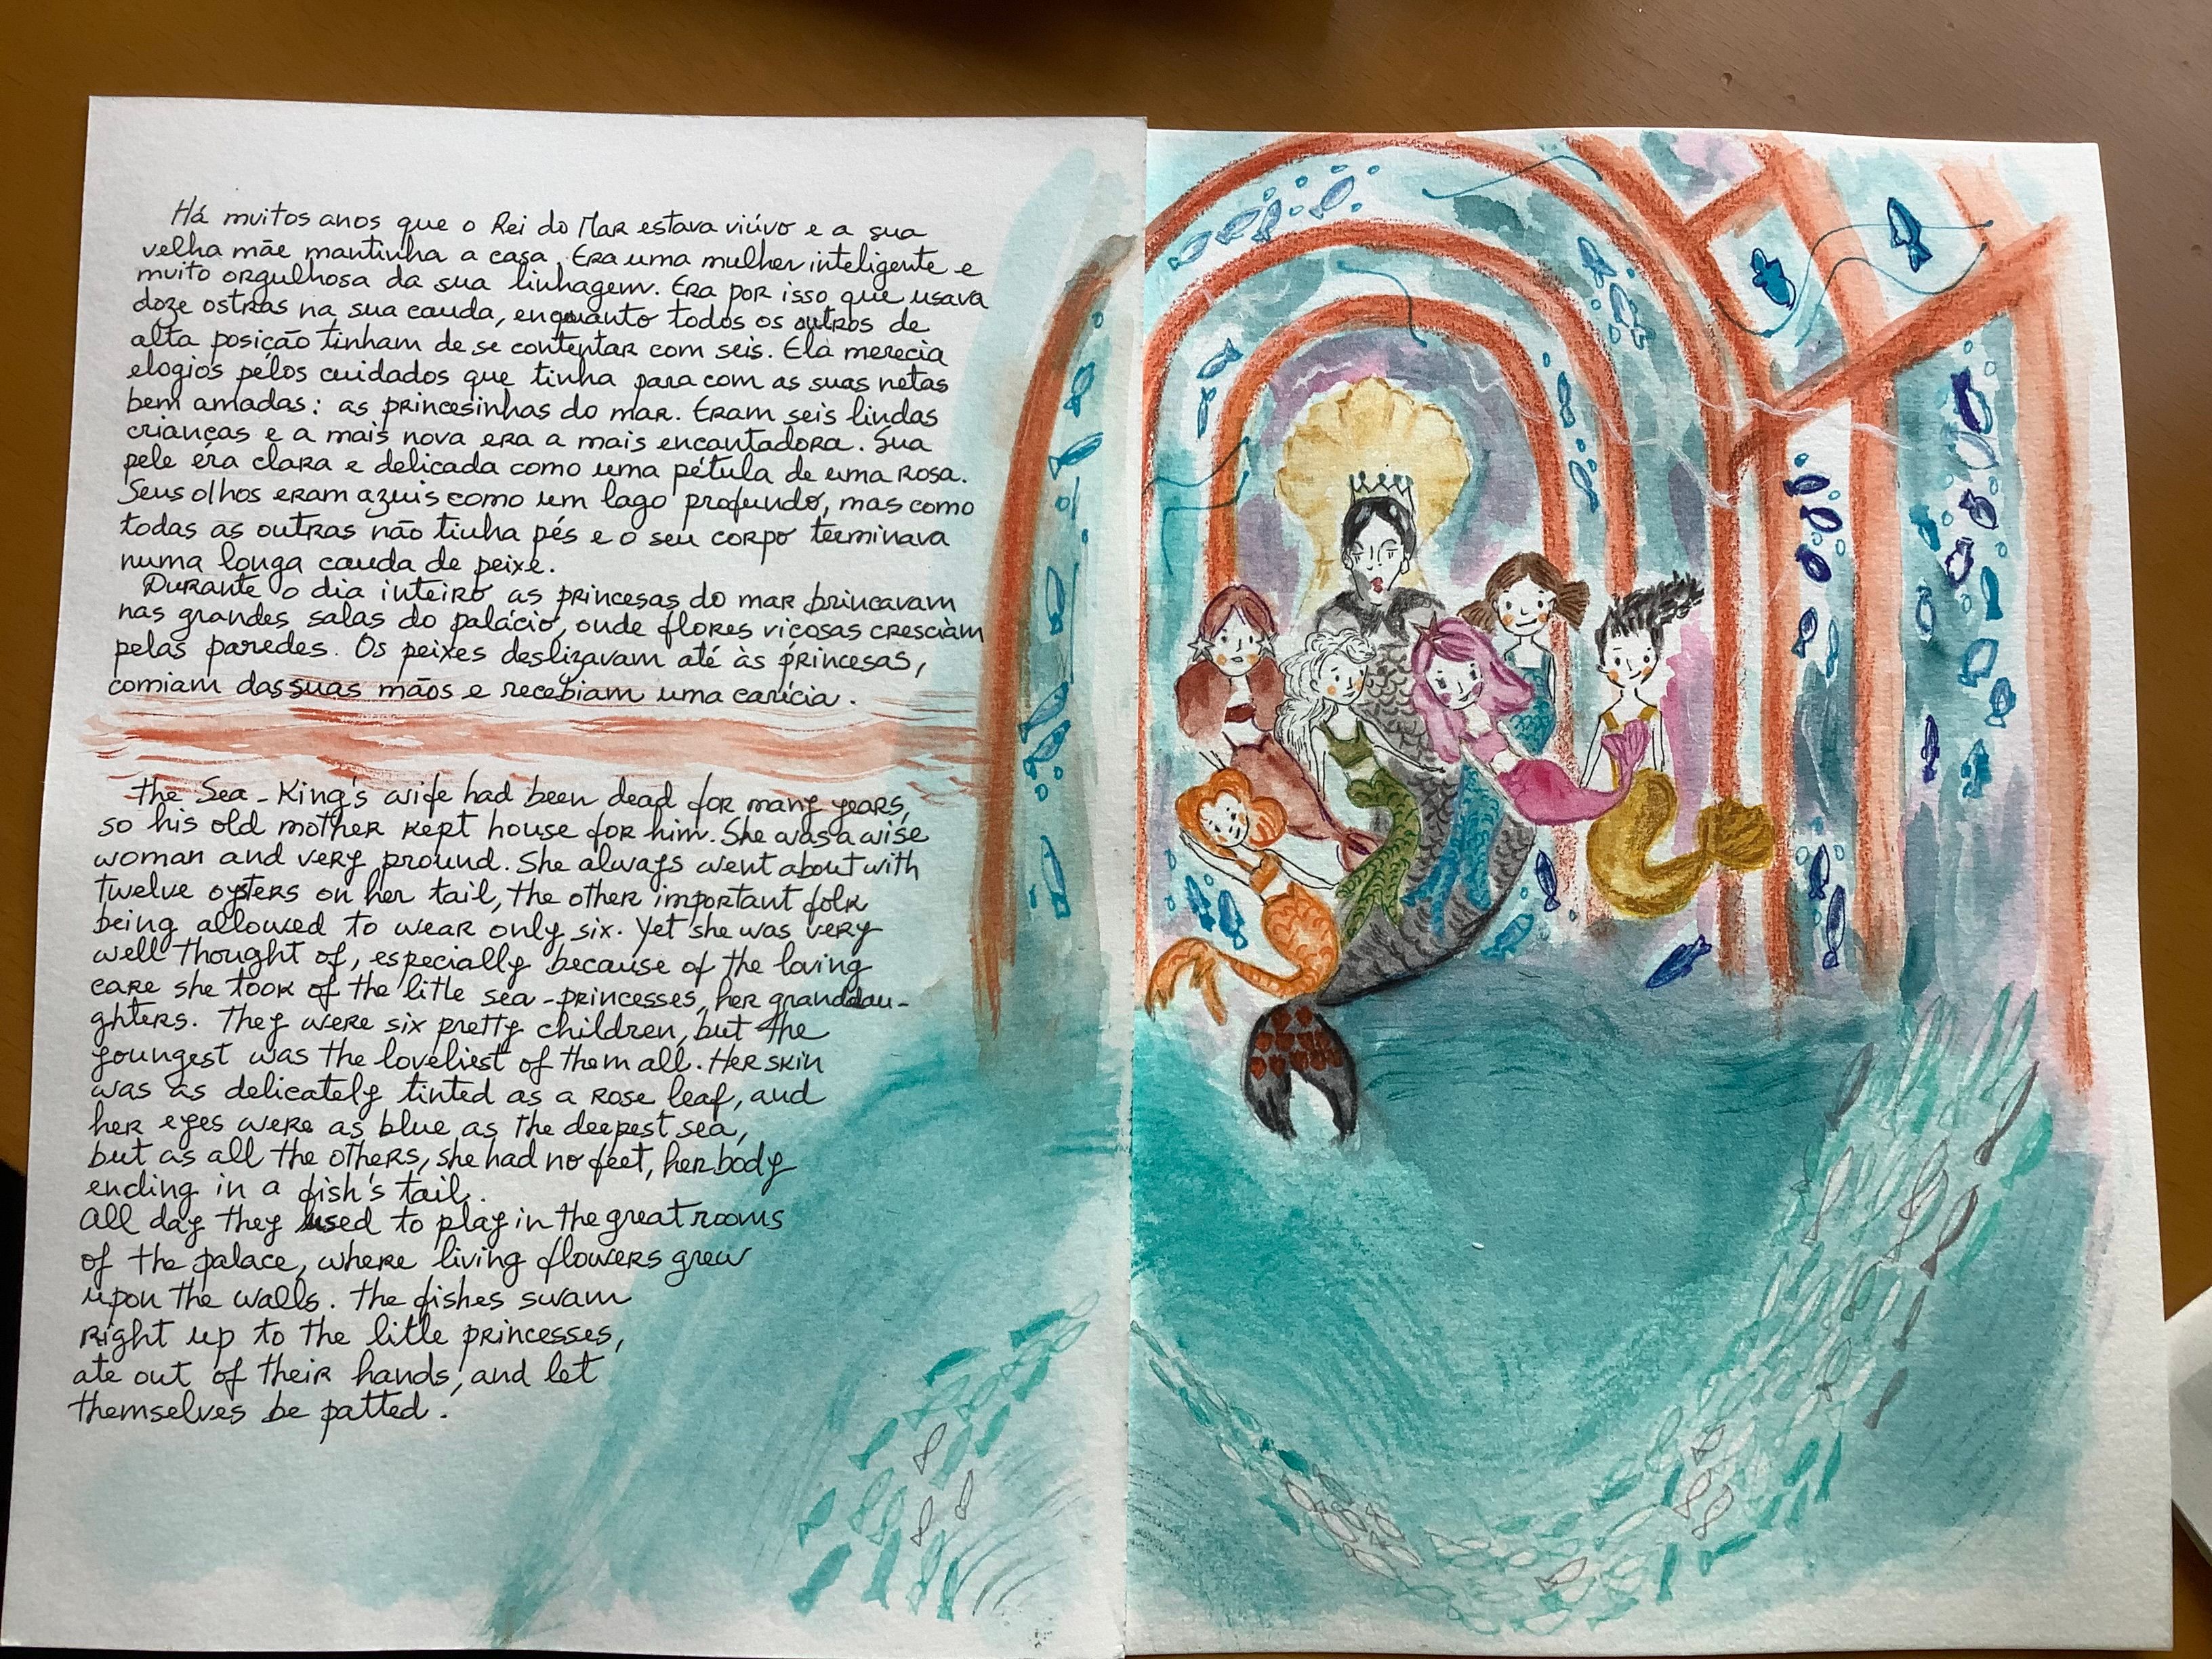 Há muitos anos que o Rei do Mar estava viúvo e a sua
velha mãe mantinha a casa. Era uma mulher inteligente e
muito orgulhosa da sua linhagem. Era por isso que usava
doze ostras na sua cauda, enquanto todos os outros de
alta posição tinham de se contentar com seis. Ela merecia
elogios pelos cuidados que tinha para com as suas netas
bem amadas: as princesinhas do mar. Eram seis lindas
crianças e a mais nova era a mais encantadora. Sua
pele era clara e delicada como uma pétula de uma rosa.
Seus olhos eram azuis como um lago profundo, mas como
todas as outras não tinha pés e o seu corpo terminava
numa longa cauda de peixe.
Durante o dia inteiro as princesas do mar brincavam
nas grandes salas do palácio, onde flores viçosas cresciam
pelas paredes. Os peixes deslizavam até às princesas,
comiam das suas mãos e recebiam uma carícia.
the Sea-King's wife had been dead for many years,
so his old mother kept house for him. She was a wise
woman and very pround. She always went about with
twelve oysters on her tail, the other important folk
being allowed to wear only six. Yet she was very
well thought of, especially because of the loving
care she took of the litle sea-princesses, her granddau-
ghters. They were six pretty children, but the
youngest was the loveliest of them all. Her skin
was as delicately tinted as a rose leaf, and
her eyes were as blue as the deepest sea,
but as all the others, she had no feet, her body
ending in a fish's tail.
All day they used to play in the great rooms
of the palace, where living flowers grew
upon the walls. The fishes swam
right up to the litle princesses,
ate out of their hands, and let
themselves be patted.